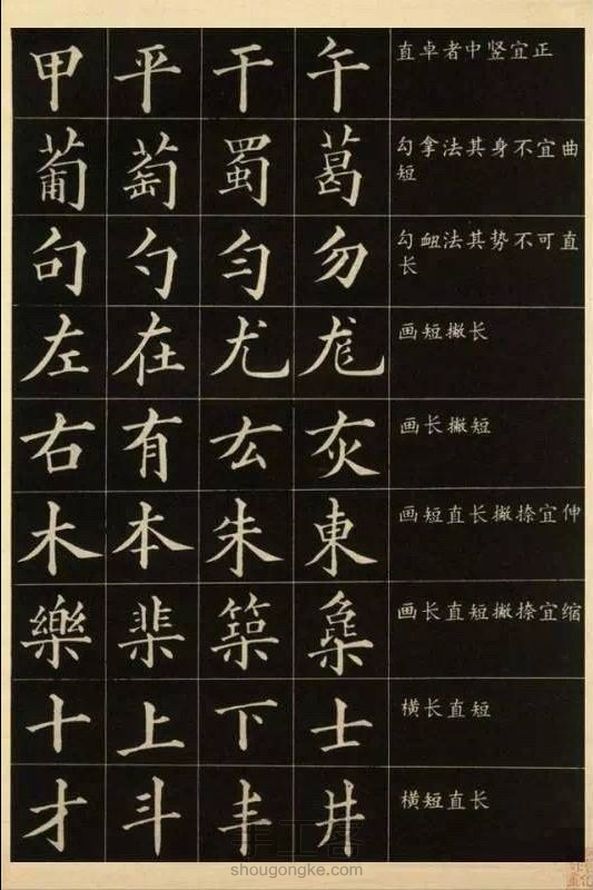 甲 平 干 午 直卓者中竖宜正
葡 萄 蜀 葛 勾拿法其身不宜曲
短
句 勺 匀 勿 勾衄法其势不可直
长
左 在 尤 尨 画短撇长
右 有 厷 灰 画长撇短
木 本 朱 東 画短直长撇捺宜伸
樂 棐 築 画长直短撇捺宜缩
十 上 下 士 横长直短
才 斗 丰 井 横短直长
手工客
shougongke.com